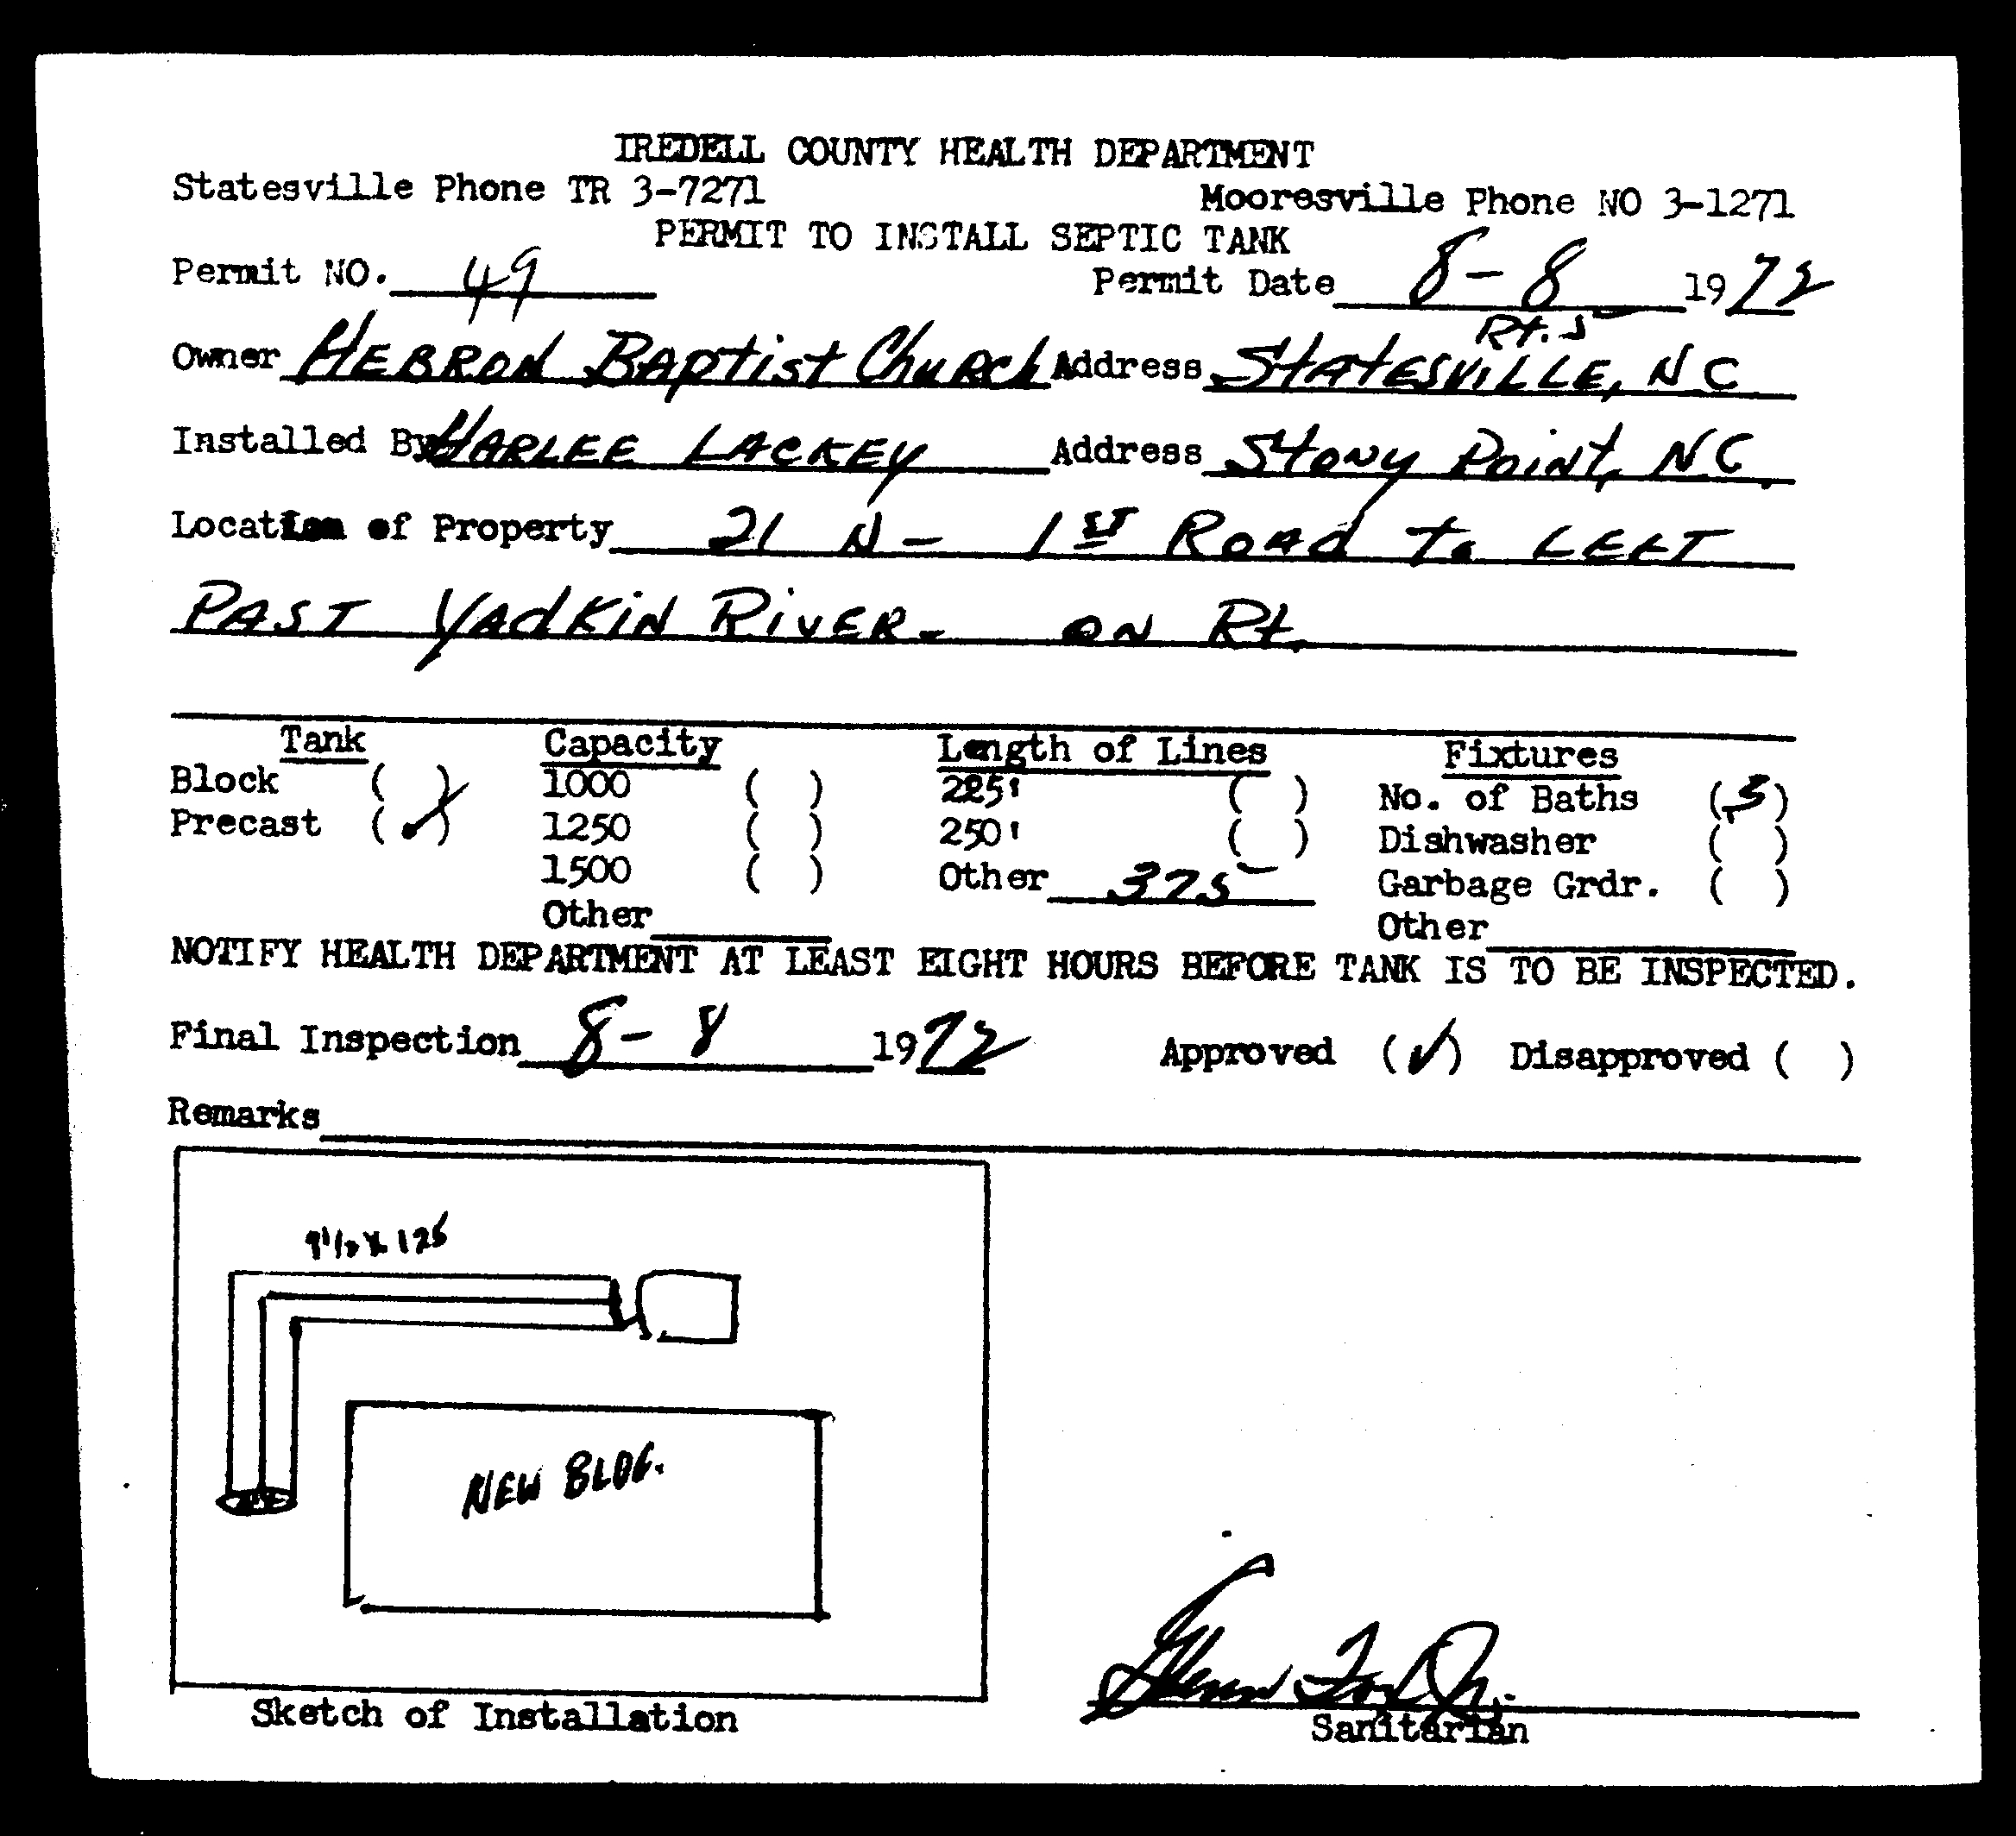 IREDELL COUNTY HEALTH DEPARTMENT
Statesville Phone TR 3-7271 Mooresville Phone NO 3-1271
PERMIT TO INSTALL SEPTIC TANK
Permit NO. 49 Permit Date 8-8 1972
Rt. 5
Owner HEBRON BAptist ChuRch Address STATESVILLE, NC
Installed By HARLEE LACKEY Address Stony Point, NC.
Location of Property 21 N - 1st Road to LEFT
PAST YAdKiN RiVER - ON Rt.
Tank Capacity Length of Lines Fixtures
Block ( ) 1000 ( ) 225' ( ) No. of Baths (5)
Precast (✓) 1250 ( ) 250' ( ) Dishwasher ( )
1500 ( ) Other 375 Garbage Grdr. ( )
Other Other
NOTIFY HEALTH DEPARTMENT AT LEAST EIGHT HOURS BEFORE TANK IS TO BE INSPECTED.
Final Inspection 8-8 1972 Approved (✓) Disapproved ( )
Remarks
X 125
NEW BLDG.
Sketch of Installation
Sanitarian